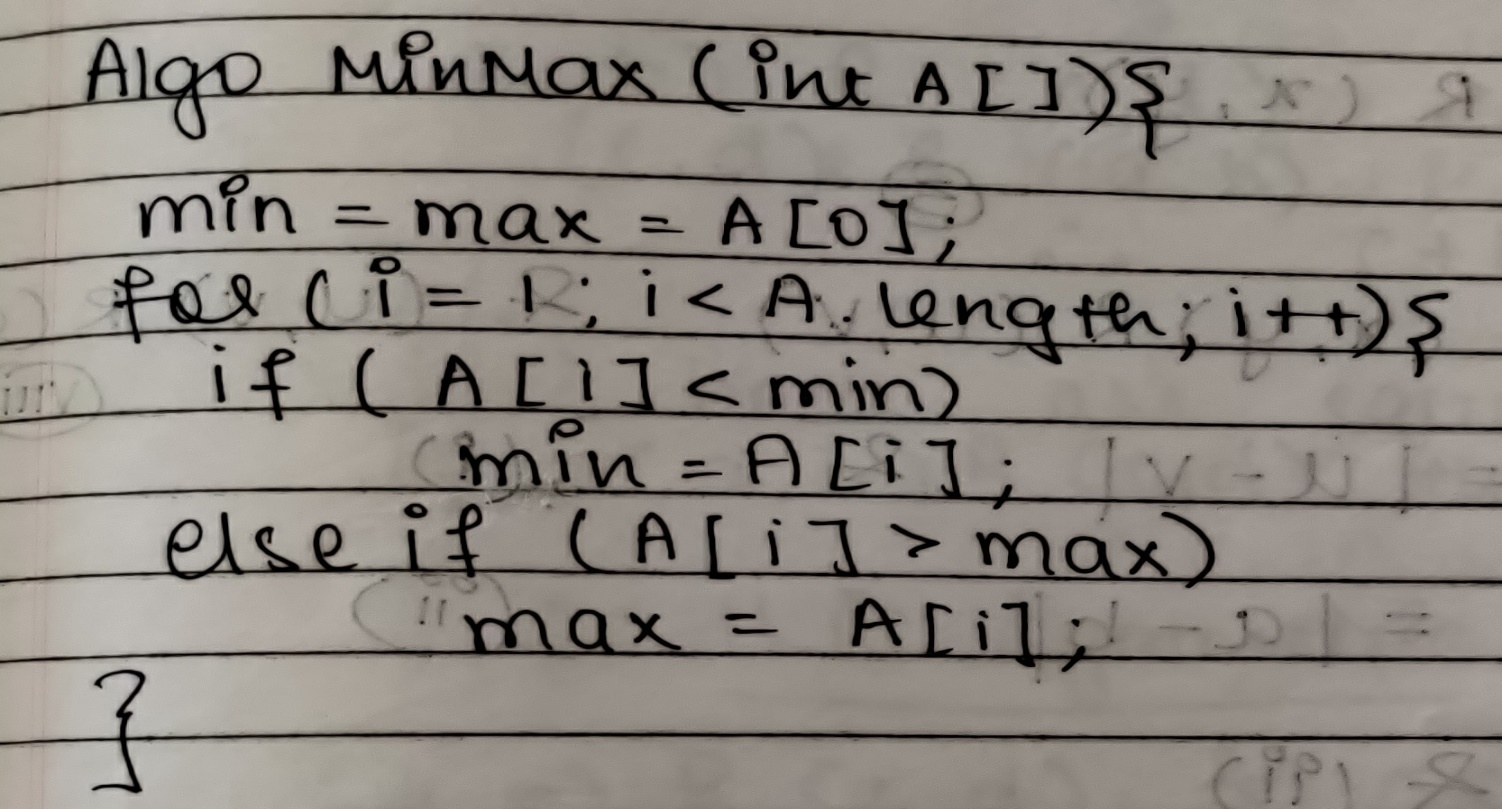 Algo MinMax (int A[]){
min = max = A[0];
for (i = 1; i < A.length; i++){
if (A[i] < min)
min = A[i];
else if (A[i] > max)
max = A[i];
}